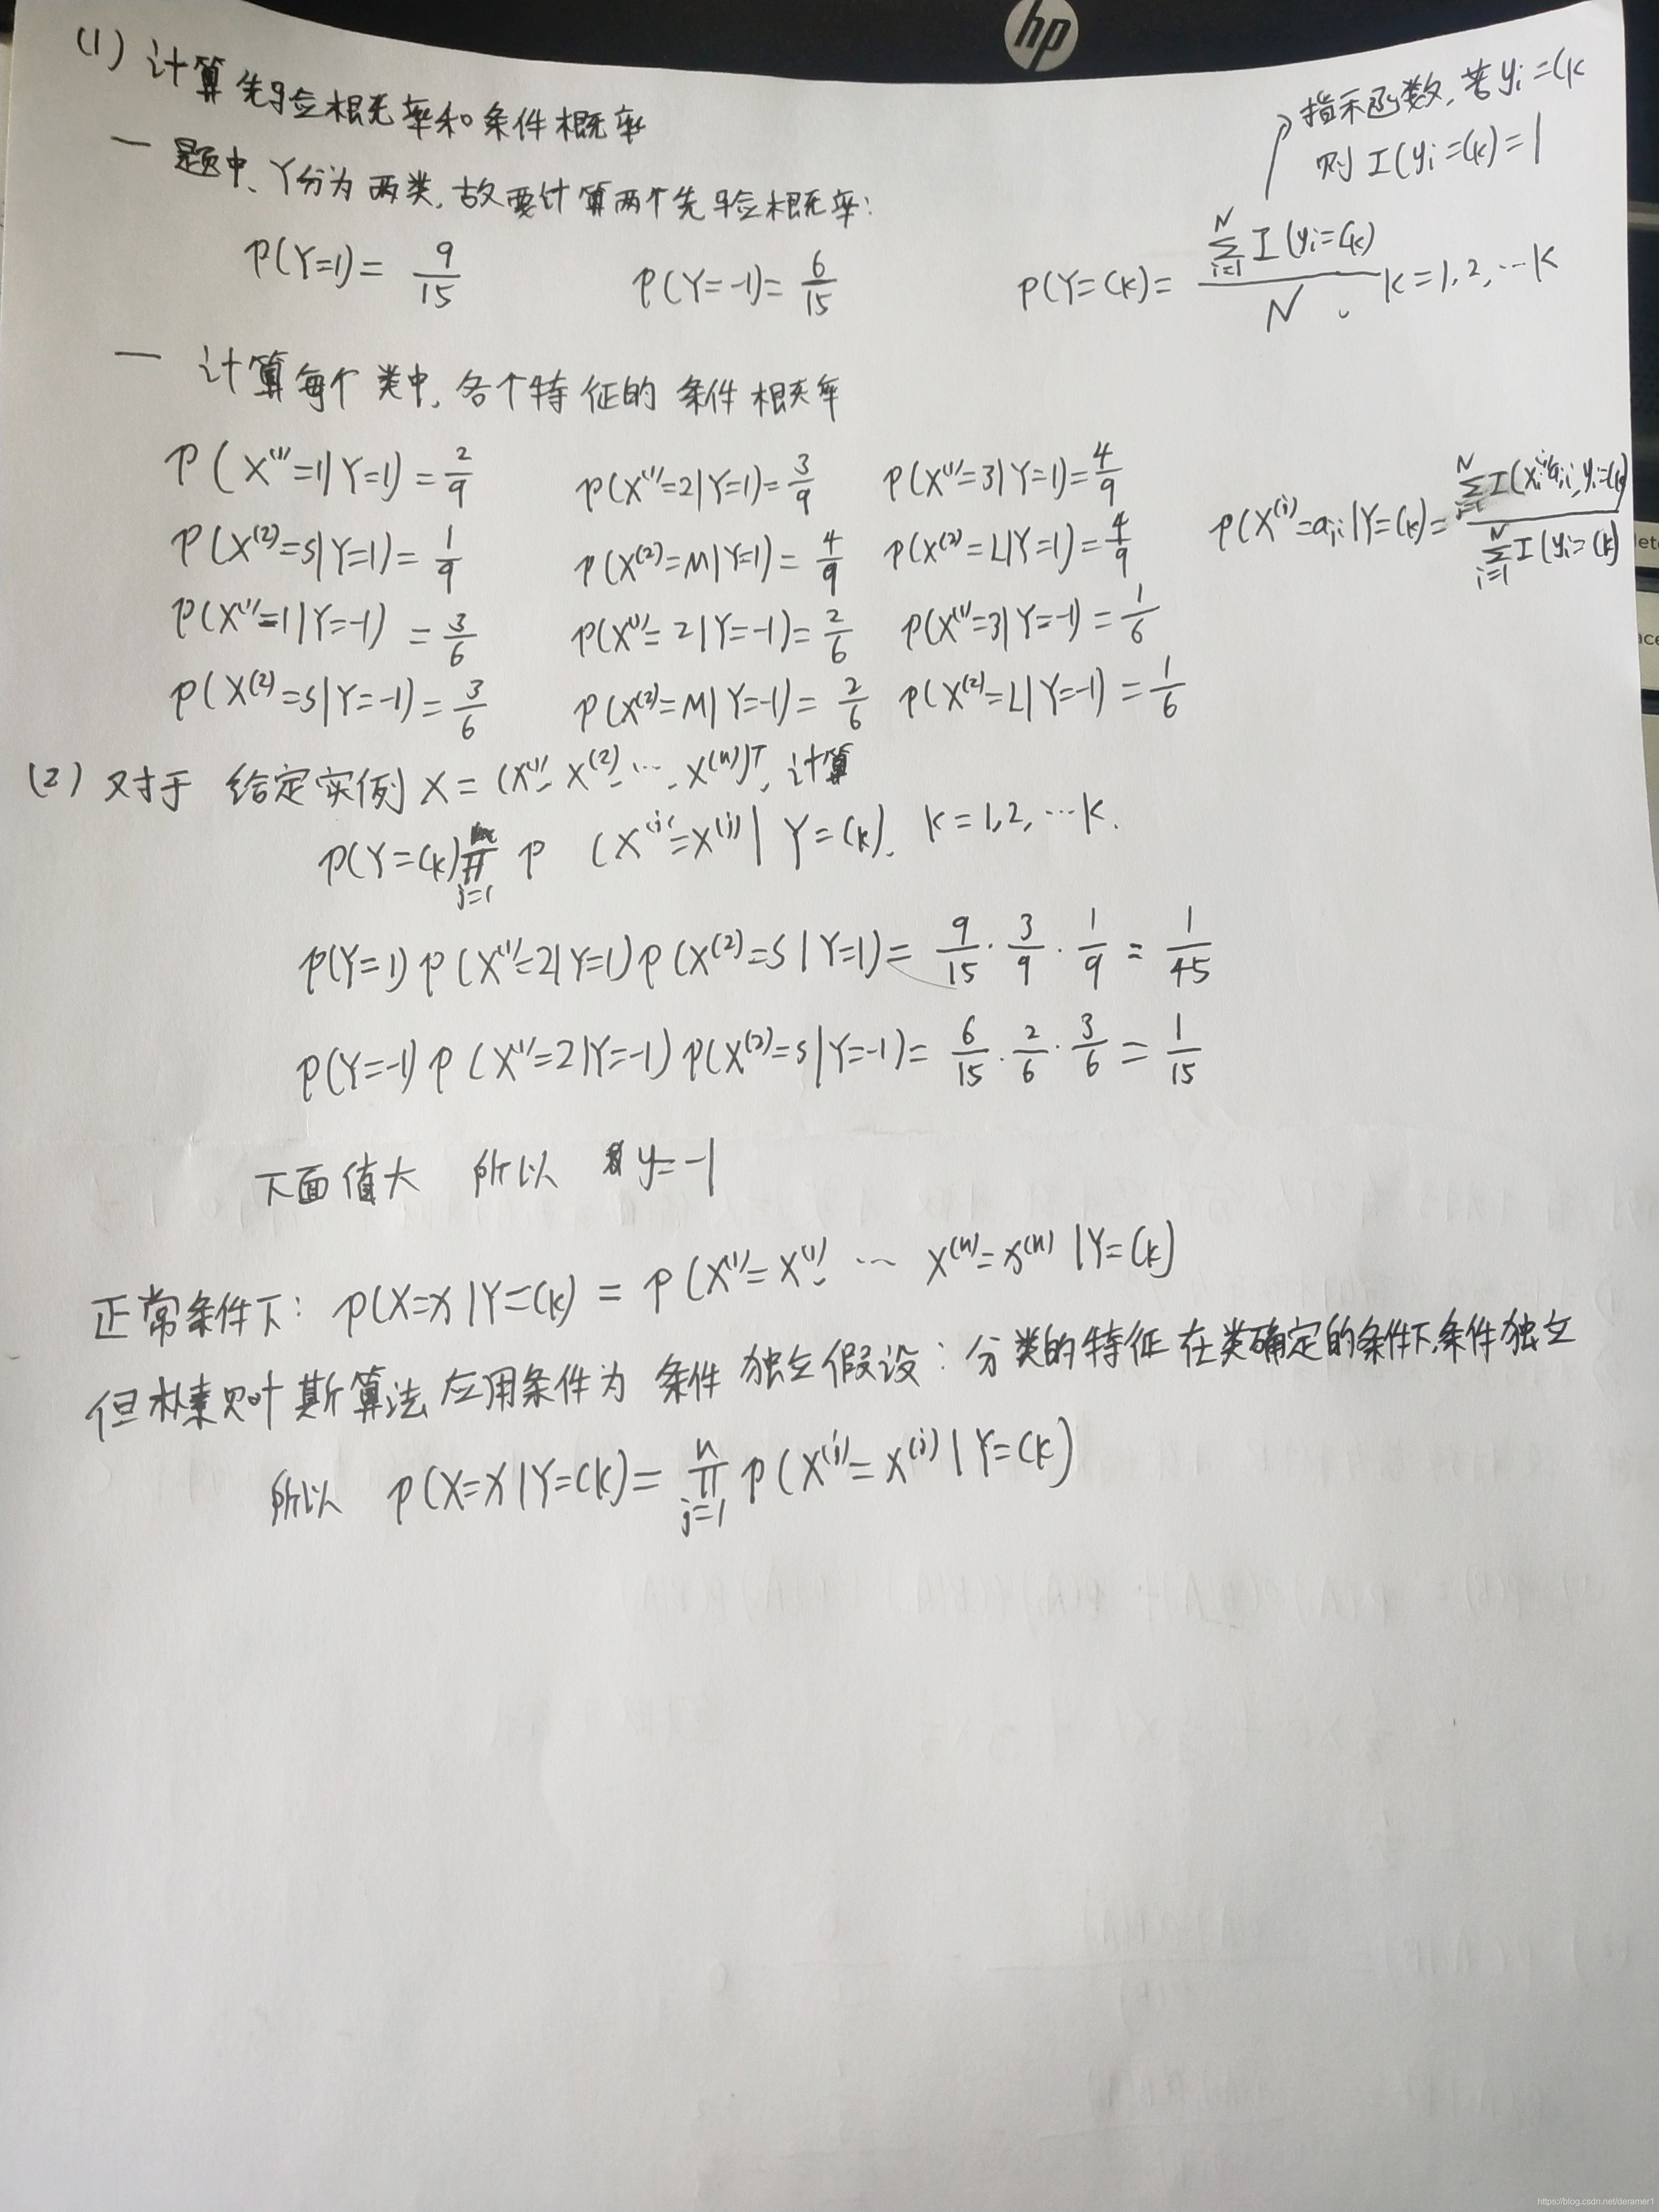 hp
(1) 计算先验概率和条件概率
指示函数,若 yi=Ck
则 I(yi=Ck)=1
— 题中、Y分为两类,故要计算两个先验概率:
P(Y=1)= 9/15 P(Y=-1)= 6/15 P(Y=Ck)= ∑_{i=1}^{N} I(yi=Ck) / N . k=1,2,…K
— 计算每个类中,各个特征的条件概率
P(X⁽¹⁾=1|Y=1)= 2/9 P(X⁽¹⁾=2|Y=1)= 3/9 P(X⁽¹⁾=3|Y=1)= 4/9
P(X⁽²⁾=S|Y=1)= 1/9 P(X⁽²⁾=M|Y=1)= 4/9 P(X⁽²⁾=L|Y=1)= 4/9
P(X⁽ʲ⁾=aji|Y=Ck)= / ∑_{i=1}^{N} I(yi=Ck)
P(X⁽¹⁾=1|Y=-1) = 3/6 P(X⁽¹⁾=2|Y=-1)= 2/6 P(X⁽¹⁾=3|Y=-1)= 1/6
P(X⁽²⁾=S|Y=-1)= 3/6 P(X⁽²⁾=M|Y=-1)= 2/6 P(X⁽²⁾=L|Y=-1)= 1/6
(2) 对于给定实例 X=(X⁽¹⁾, X⁽²⁾, …, X⁽ⁿ⁾)ᵀ, 计算
P(Y=Ck) ∏_{j=1} P(X⁽ʲ⁾=X⁽ʲ⁾|Y=Ck). k=1,2,…K.
P(Y=1)P(X⁽¹⁾=2|Y=1)P(X⁽²⁾=S|Y=1)= 9/15 · 3/9 · 1/9 = 1/45
P(Y=-1)P(X⁽¹⁾=2|Y=-1)P(X⁽²⁾=S|Y=-1)= 6/15 · 2/6 · 3/6 = 1/15
下面值大 所以 y=-1
正常条件下: P(X=x|Y=Ck) = P(X⁽¹⁾=X⁽¹⁾, … X⁽ⁿ⁾=x⁽ⁿ⁾|Y=Ck)
但朴素贝叶斯算法应用条件为 条件独立假设:分类的特征在类确定的条件下,条件独立
所以 P(X=x|Y=Ck)= ∏_{j=1}^{n} P(X⁽ʲ⁾=X⁽ʲ⁾|Y=Ck)
https://blog.csdn.net/deramer1